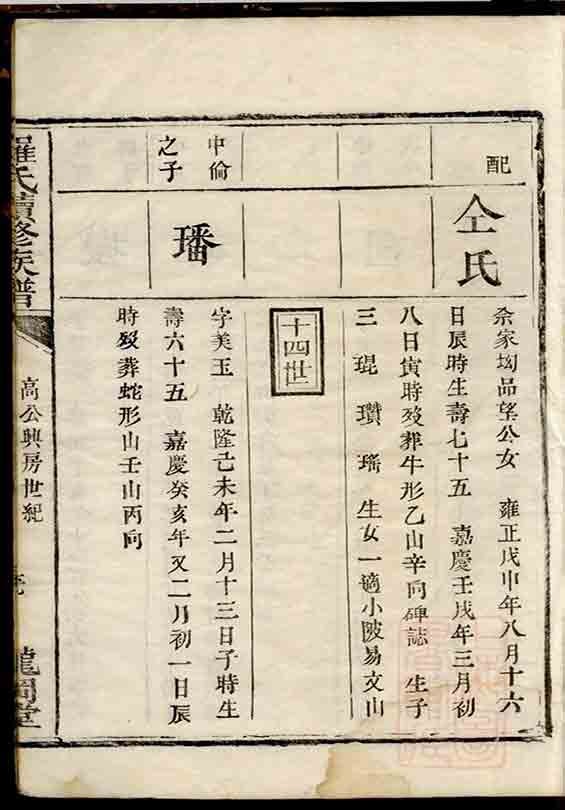 配
仝氏
余家坳品望公女　雍正戊申年八月十六
日辰時生壽七十五　嘉慶壬戌年三月初
八日寅時殁葬牛形乙山辛向碑誌　生子
三　琨　瓚　瑤　生女一適小陂易文山
十四世
中倫
之子
璠
字美玉　乾隆己未年二月十三日子時生
壽六十五　嘉慶癸亥年又二月初一日辰
時殁葬蛇形山壬山丙向
羅氏續修族譜
高公興房世紀